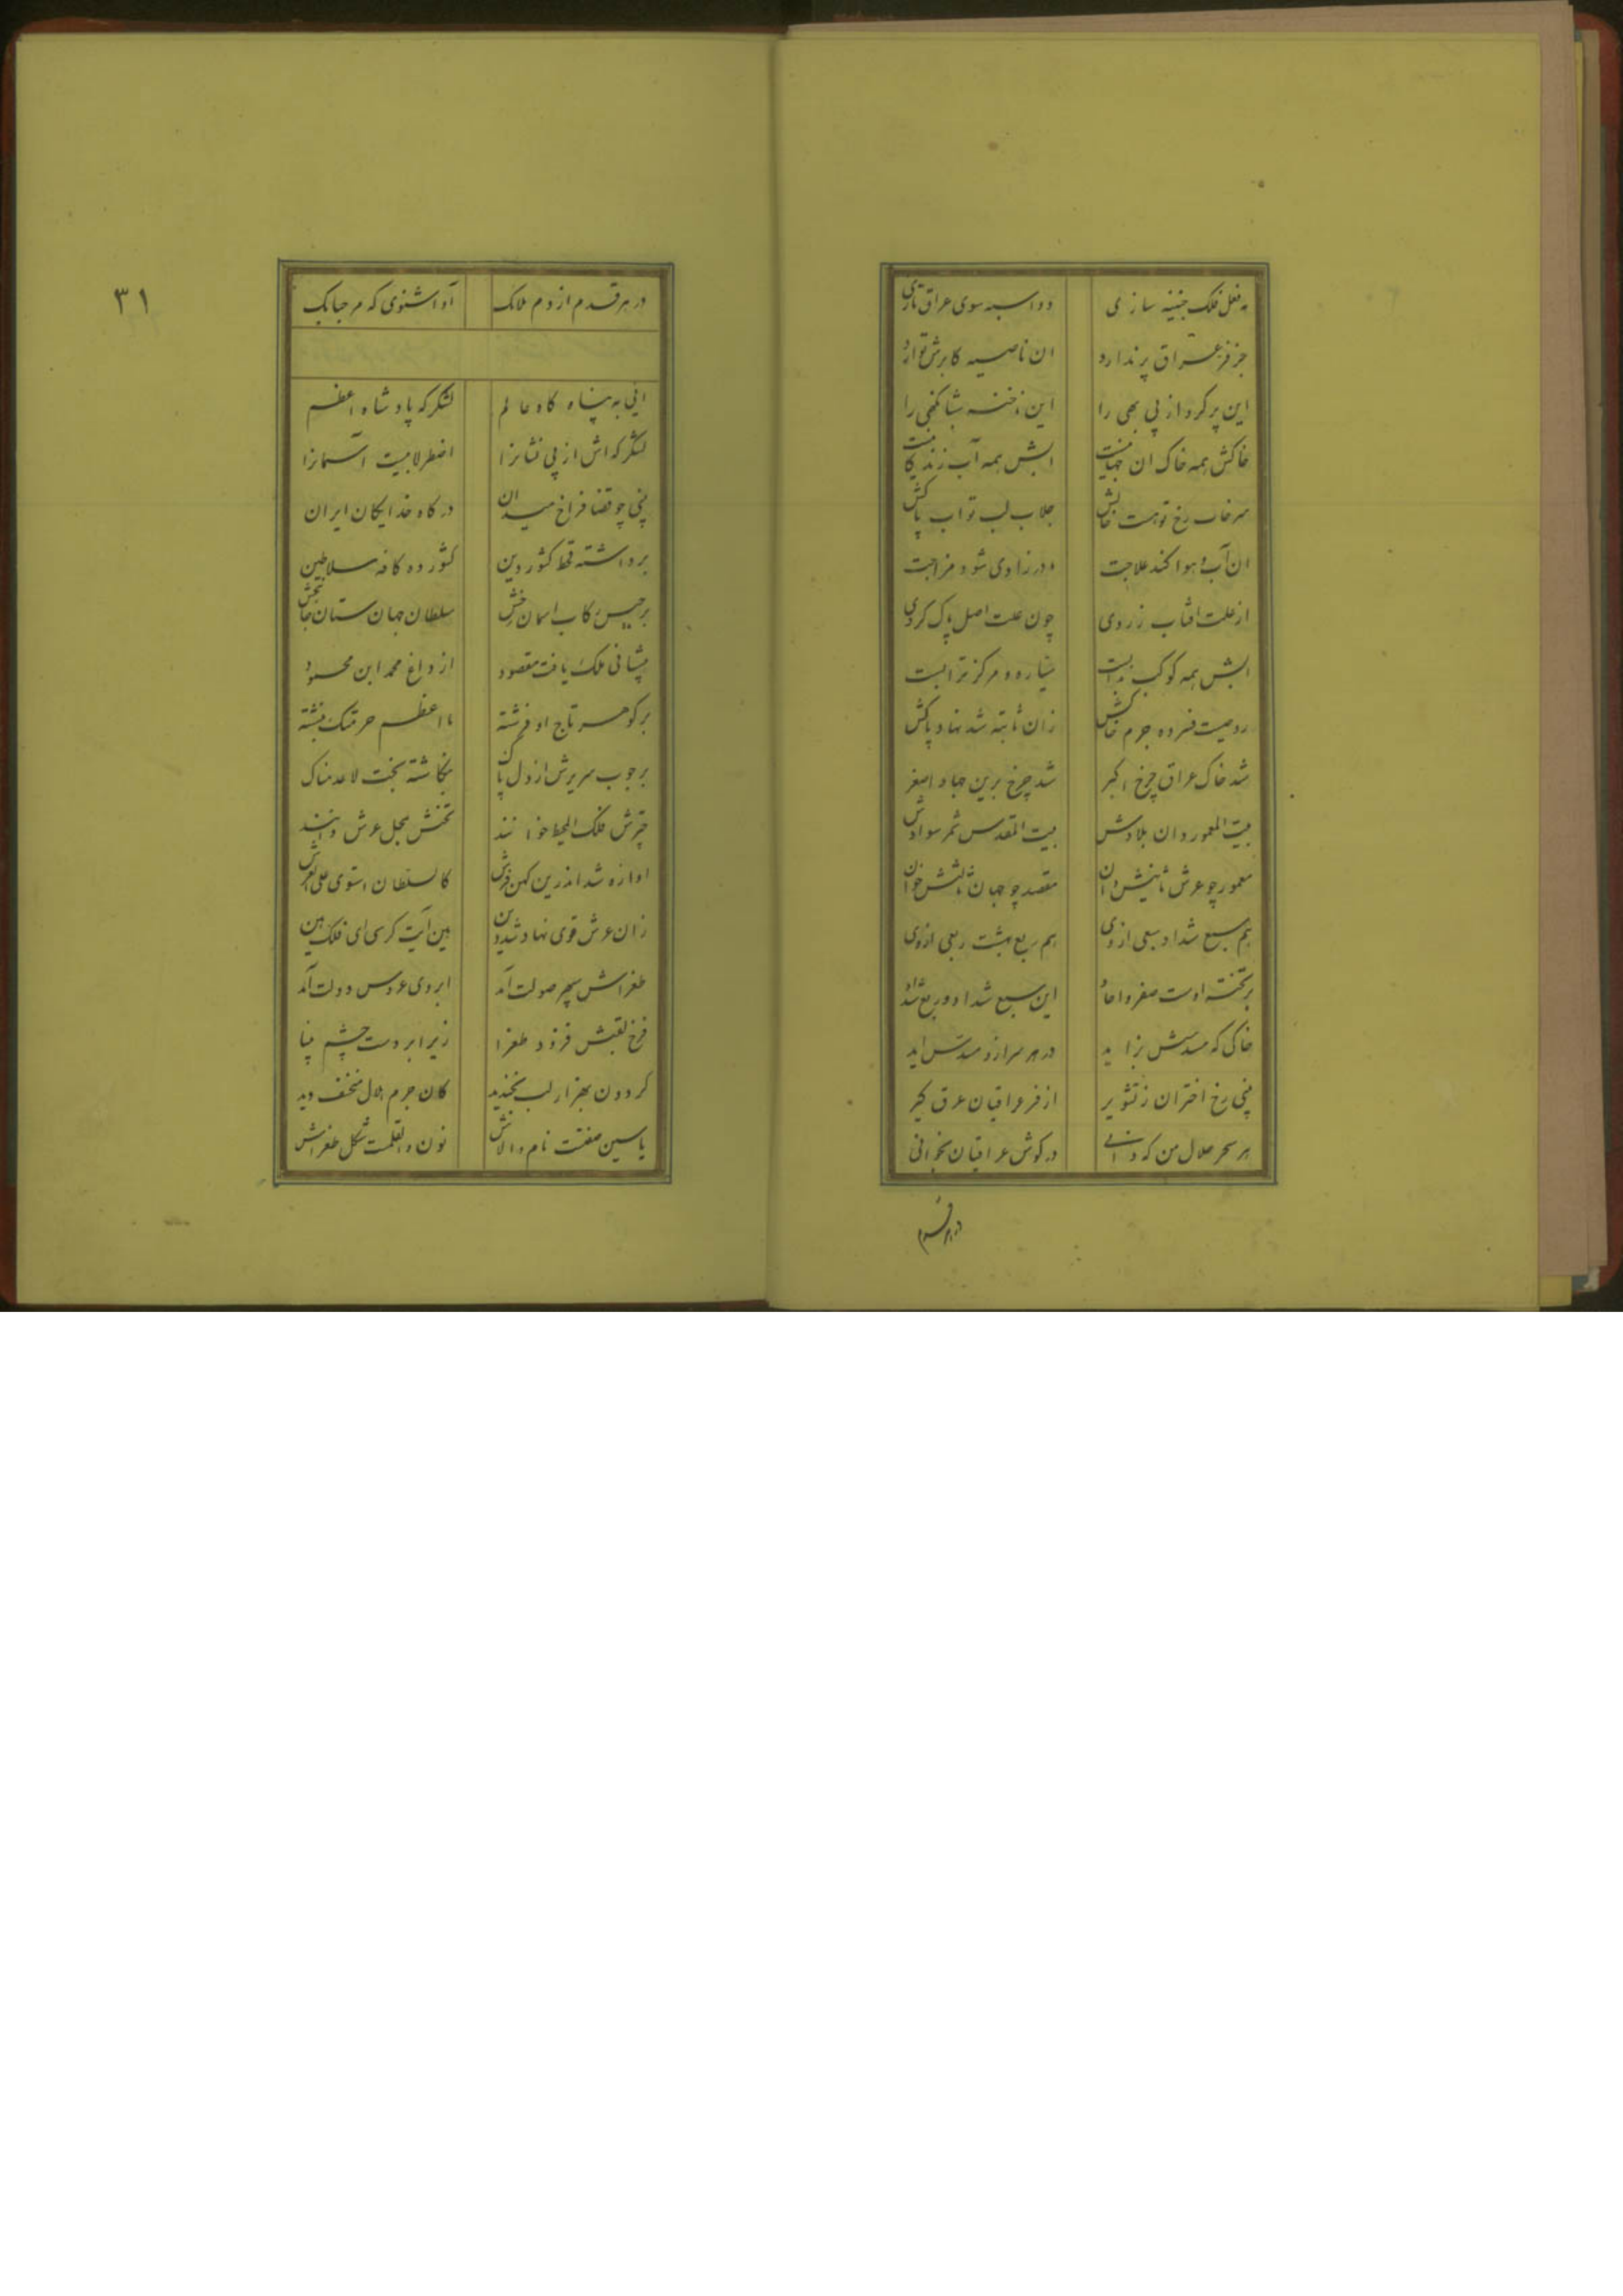 به نعل فلک جنیبه سازی دو اسبه سوی عراق تازی
جز فر عراق پر ندارد ان ناصیه کابرش تو ارد
این پر کرد از پی بهی را این
خاکش همه خاک ان جهانیست ابش همه آب زندگانیست
سرخاب رخ تو هست خاکش جلاب لب تو اب پاکش
ان آب و هوا کند علاجت در زاوی شود مزاجت
از علت افتاب زردی چون علت اصل پاک کردی
ابش همه کوکب سیاره و مرکز ترابست
روحیت فسرده جرم خاکش زان ثابته شد نهاد پاکش
شد خاک عراق چرخ اکبر شد چرخ برین جهاد اصغر
بیت المعمور دان بلادش بیت المقدس شمر سوادش
معمور چو عرش ثانیش دان مقصد چو جهان ثالثش خوان
هم سبع شداد سبعی ازوی هم ربع بهشت ربعی ازوی
بر تخته اوست صفر و احاد این سبع شداد و ربع شداد
خاکی که مسدسش بزاید در هر سر ازو مسدس اید
بینی رخ اختران ز تشویر از فر عراقیان عرق گیر
هر سحر حلال من که دانی در گوش عراقیان بخوانی
در هر قدم
۳۱
در هر قدم از دم ملائک آواشنوی که مرحبابک
آیی به پناه گاه عالم لشکرگه پادشاه اعظم
لشکرگه اش از پی نشانرا اضطرلابیست آسمانرا
بینی چو قضا فراخ میدان درگاه خدایگان ایران
برداشته قحط کشور دین کشور ده کافه سلاطین
برجیس رکاب اسمان رخش سلطان جهان ستان جانبخش
پیشانی ملک یافت مقصود از داغ محمد ابن محمود
بر گوهر تاج او فرشته با اعظم حرمتک نبشته
بر چوب سریرش از دل پاک بنگاشته بخت لا عدمناک
چترش فلک المحیط خوانند تختش محل عرش دانند
اوازه شد اندرین کهن فرش کالسلطان استوی علی العرش
زان عرش قوی نهاد شد دین بین آیت کرسی ای فلک هین
طغراش سپهر صولت آمد ابروی عروس دولت آمد
فرخ لقبش فزود طغرا زیر ابروست چشم بینا
گردون بهزار لب بخندید کان جرم هلال منخسف دید
یاسین صفتست نام والاش نون و القلمست شکل طغراش